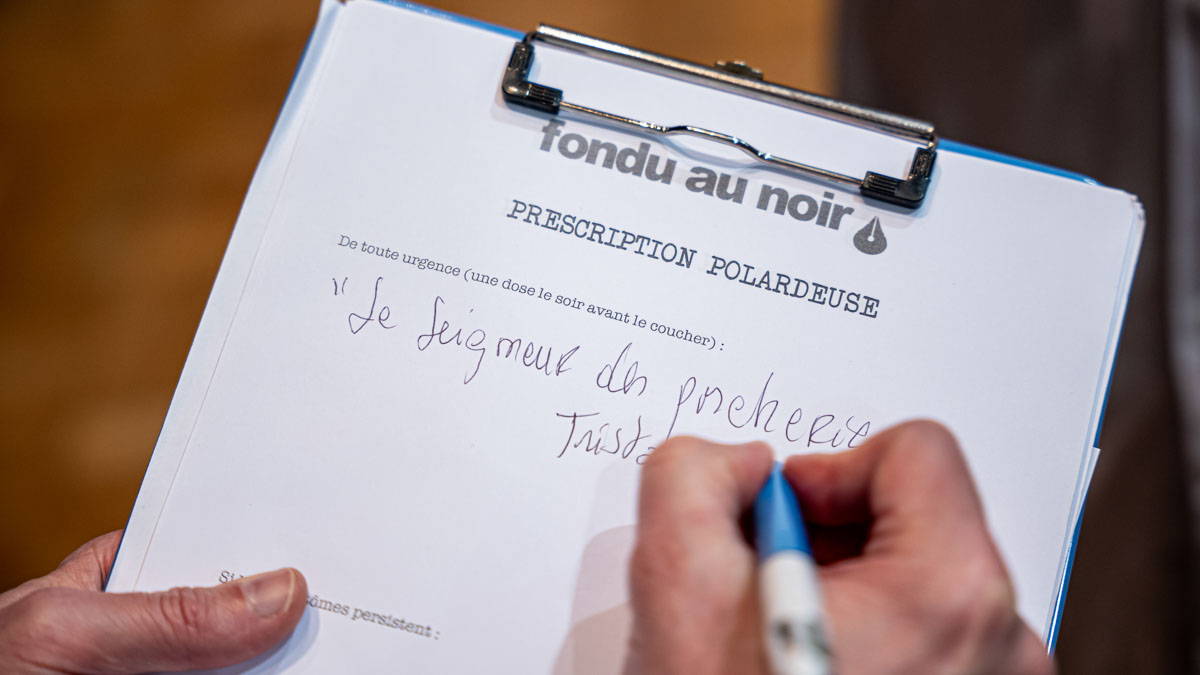 fondu au noir
PRESCRIPTION POLARDEUSE
De toute urgence (une dose le soir avant le coucher) :
"Le Seigneur des porcherie
Trista
Si
ômes persistent :